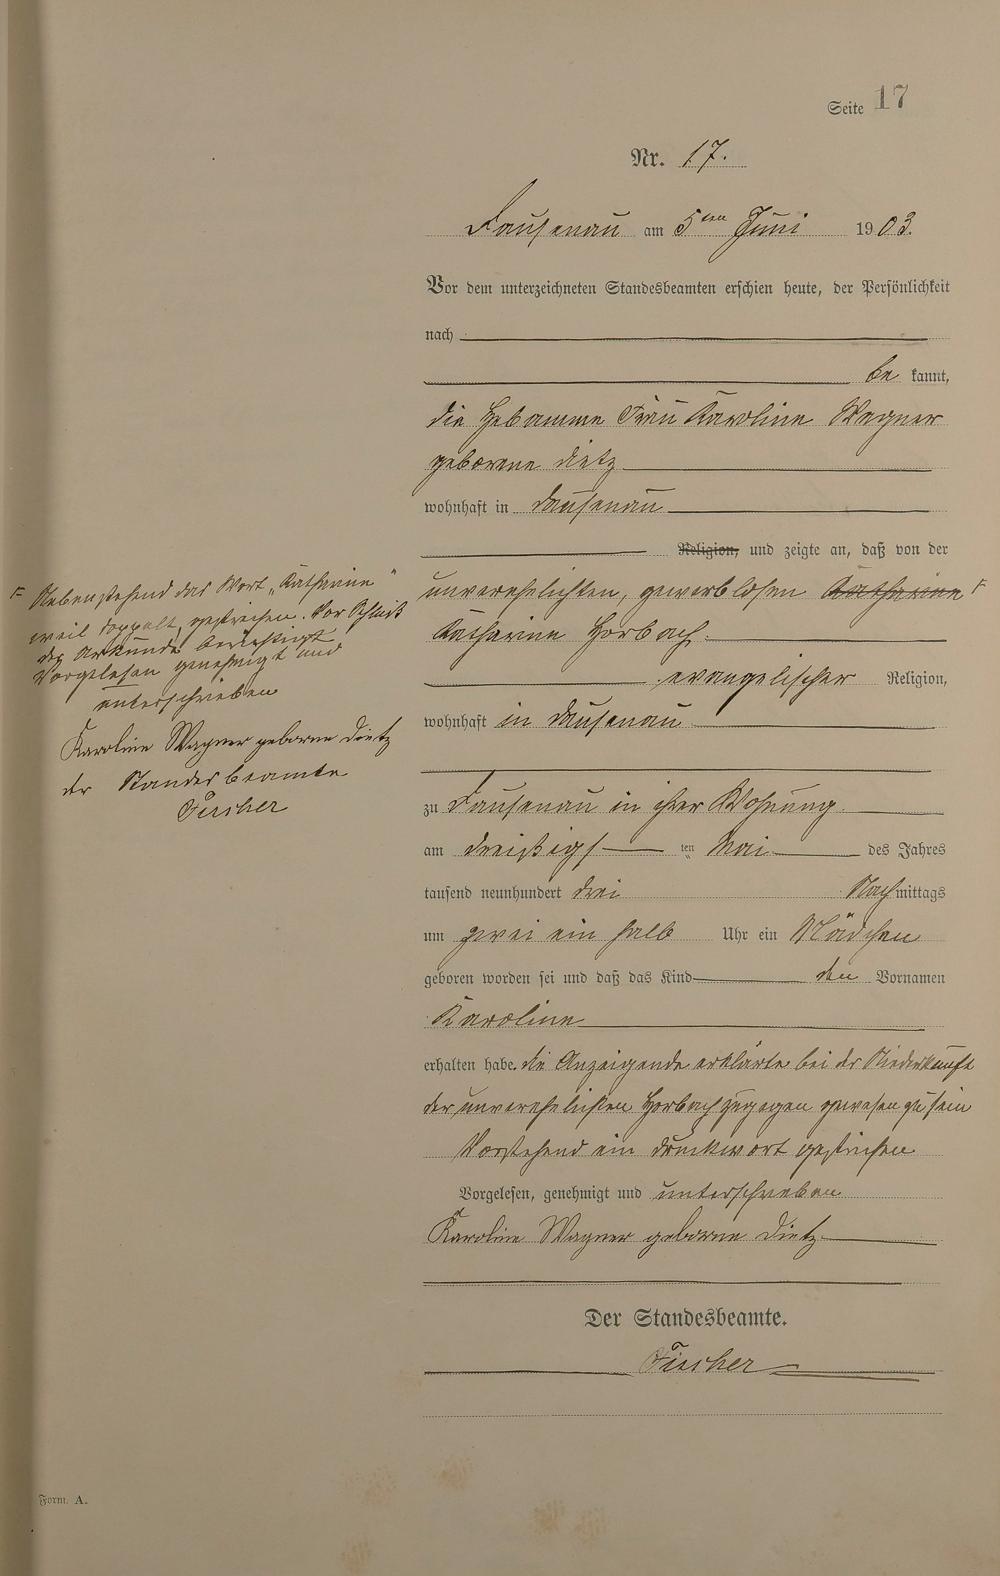 Seite 17
Nr. 17.
Dausenau am 5ten Juni 1903.
Vor dem unterzeichneten Standesbeamten erschien heute, der Persönlichkeit
nach
be kannt,
die Hebamme Frau Karoline Wagner
geborene Dietz
wohnhaft in Dausenau
Religion, und zeigte an, daß von der
unverehelichten, gewerblosen Katharine F
Katharine Horbach.
evangelischer Religion,
wohnhaft in Dausenau
zu Dausenau in ihrer Wohnung
am dreißigs ten Mai des Jahres
tausend neunhundert drei Nachmittags
um zwei ein halb Uhr ein Mädchen
geboren worden sei und daß das Kind den Vornamen
Karoline
erhalten habe. die Anzeigende erklärte bei der Niederkunft
der unverehelichten Horbach zugegen gewesen zu sein
Vorstehend ein Druckwort gestrichen
Vorgelesen, genehmigt und unterschrieben
Karoline Wagner geborne Dietz
Der Standesbeamte.
Fischer
F Nebenstehend das Wort „Katharine"
weil doppelt, gestrichen. Vor Schluß
der Urkunde berichtigt
Vorgelesen genehmigt und
unterschrieben
Karoline Wagner geborne Dietz
der Standesbeamte
Fischer
Form. A.